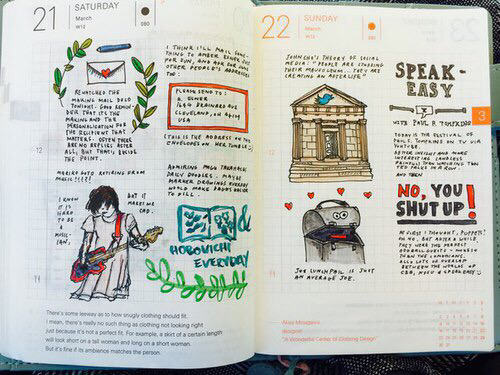 21
SATURDAY
March
W12
080
REWATCHED THE
MAKING MAIL DOCO
TONIGHT. GOOD REMIN-
DER THAT IT'S THE
MAKING AND THE
PERSONALISATION FOR
THE RECIPIENT THAT
MATTERS. OFTEN THERE
ARE NO REPLIES AFTER
ALL, BUT THAT'S BESIDE
THE POINT.
I THINK I'LL MAIL SOME-
THING TO AMBER ELNER JUST
FOR FUN, AND ASK FOR SOME
OTHER PEOPLE'S ADDRESSES
TOO:
PLEASE SEND TO:
A. ELNER
DRAINARD AVE
CLEVELAND, OH
USA
(THIS IS THE ADDRESS ON THE
ENVELOPES ON HER TUMBLR.)
MARIKO GOTO RETIRING FROM
MUSIC!!??!
I KNOW
IT IS
HARD TO
BE A
MUSIC-
IAN,
BUT IT
MAKES ME
SAD.
ADMIRING
DAILY DOODLES. MAYBE
MARKER DRAWINGS EVERYDAY
WORLD MAKE
TO FILL.
&
HOBONICHI
EVERYDAY
There's some leeway as to how snugly clothing should fit.
I mean, there's really no such thing as clothing not looking right
just because it's not a perfect fit. For example, a skirt of a certain length
will look short on a tall woman and long on a short woman.
But it's fine if its ambience matches the person.
22
SUNDAY
March
W12
081
JOHN CHO'S THEORY OF SOCIAL
MEDIA: "PEOPLE ARE STOCKING
THEIR MAUSOLEUM... THEY ARE
CREATING AN AFTERLIFE."
JOE LUNCHPAIL IS JUST
AN AVERAGE JOE.
SPEAK-
EASY
WITH PAUL F. TOMPKINS
TODAY IS THE FESTIVAL OF
PAUL F. TOMPKINS ON TV VIA
YOUTUBE.
AFTER INSIGHT AND MORE
INTERESTING
THAN WATCHING TWO
TED TALKS IN A ROW.
AND THEN
NO, YOU
SHUT UP!
AT FIRST I THOUGHT, PUPPETS?
OH NO, BUT AFTER A WHILE,
THEY WERE THE PERFECT
ODDBALL GUESTS - MORE SO
THAN THE COMEDIANS.
ALSO LOTS OF OVERLAP
BETWEEN THE WORLDS OF
CBB, NYSU & SPEAKEASY :)
3
designer
"A Wonderful Center of Clothing Design"